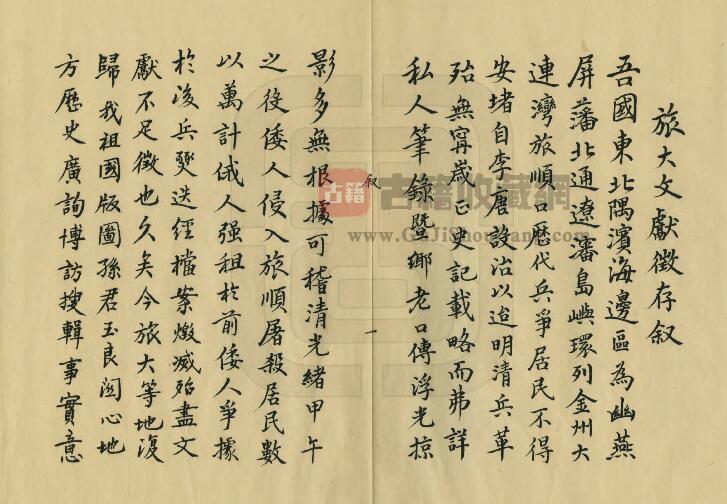 旅大文獻徵存叙
吾國東北隅濱海邊區為幽燕
屏藩北通遼瀋島嶼環列金州大
連灣旅順口歷代兵爭居民不得
安堵自李唐設治以迨明清兵革
殆無甯歲正史記載略而弗詳
私人筆錄暨鄉老口傳浮光掠
叙
一
影多無根據可稽清光緒甲午
之役倭人侵入旅順屠殺居民數
以萬計俄人强租於前倭人爭據
於後兵燹迭經檔案燬滅殆盡文
獻不足徵也久矣今旅大等地復
歸我祖國版圖孫君玉良関心地
方歷史廣詢博訪搜輯事實意
古籍
古籍收藏網
www.GuJiShouCang.com